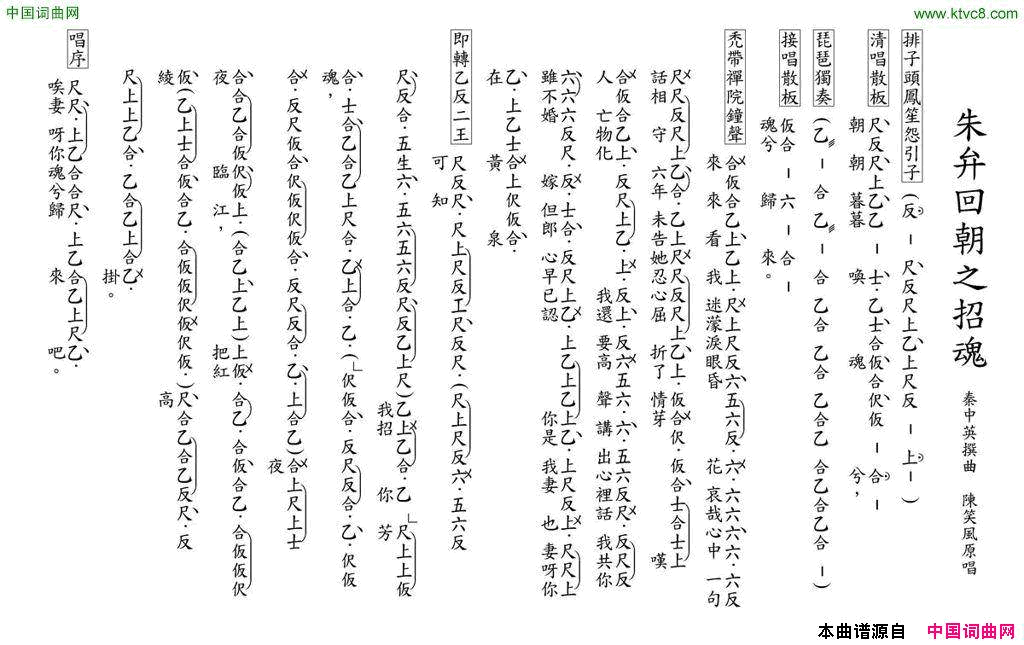 中国词曲网
www.ktvc8.com
朱弁回朝之招魂
秦中英撰曲　陳笑風原唱
排子頭鳳笙怨引子 (反 — 尺反反尺上乙上尺反 — 上 — )
清唱散板 尺反尺上乙乙 — 士·乙士合仮合伬仮 — 合 —
朝朝暮暮 喚 魂 兮，
琵琶獨奏 (乙 — 合 乙 — 合 乙合 乙合 乙合乙 合乙合乙合 — )
接唱散板 仮合 — 六 — 合 —
魂兮 歸 來。
禿帶禪院鐘聲 合仮合乙上乙上·尺上尺反六五六反·六·六六六六·六反
來 來 看 我 迷濛淚眼昏 花 哀哉心中 一句
尺尺反尺上乙合·乙上尺尺反尺上乙上·仮合伬·仮合士合士上
話相 守 六年 未告她忍心屈 折了 情芽 嘆
合仮合乙上·反尺上乙·上·反上·反六五六·六·五六反尺·反尺反
人 亡物化 我還 要高 聲 講 出心裡話 我共你
六六六反尺·反·士合·反尺上乙·上乙上乙上乙·上尺反上·尺尺上
雖不婚 嫁 但郎 心早已認 你是 我妻 也 妻呀你
乙·上乙士合上伬仮合·
在 黃 泉
即轉乙反二王 尺反尺·尺上尺反工尺反反尺·(尺上尺反六·五六反
可 知
尺反合·五生六·五六五六反尺反乙上尺)乙上乙合·乙 尺上上仮
我招 你 芳
合·士合乙合乙上尺合·乙上合·乙·(伬仮合·反尺反合·乙·伬仮
魂，
合·反尺仮合伬仮伬仮合·反尺反合·乙·上合乙)合上尺上士
夜
合合乙合仮伬仮上·(合乙上乙上)上仮·合乙·合仮合乙·合仮仮伬
夜 臨 江， 把紅
仮(乙上士合仮合乙·合仮仮伬仮伬仮·)尺合乙合乙反尺·反
綾 高
尺上上乙合·乙合乙上合乙·
掛。
唱序 尺尺·上乙合合尺·上乙合乙上尺乙·
唉妻 呀你魂兮歸 來 吧。
本曲谱源自 中国词曲网